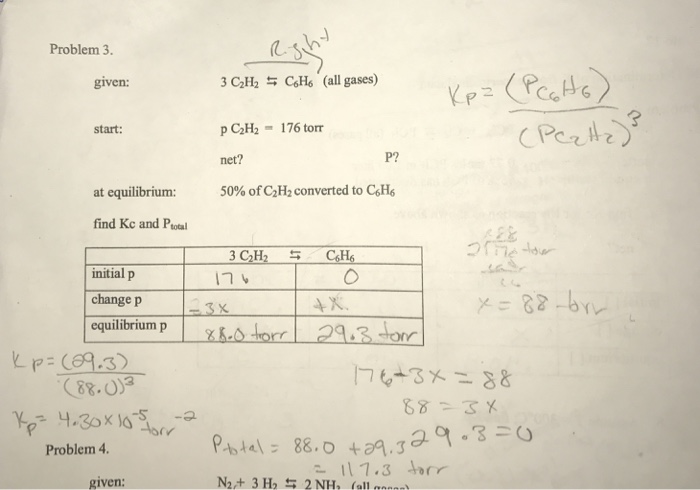 Right
Problem 3.
given: 3 C₂H₂ ⇆ C₆H₆ (all gases)
Kp = (PC6H6)
(PC2H2)³
start: p C₂H₂ = 176 torr
net? P?
at equilibrium: 50% of C₂H₂ converted to C₆H₆
find Kc and Ptotal
3 C₂H₂ ⇆ C₆H₆
initial p 176 0
change p -3x +x
equilibrium p 88.0 torr 29.3 torr
88
x = 88 torr
Kp = (29.3)
(88.0)³
176-3x = 88
88 = 3x
29.3 = 
Kp = 4.30x10⁻⁵ torr⁻²
Ptotal = 88.0 + 29.3
= 117.3 torr
Problem 4.
given: N₂ + 3 H₂ ⇆ 2 NH₃ (all